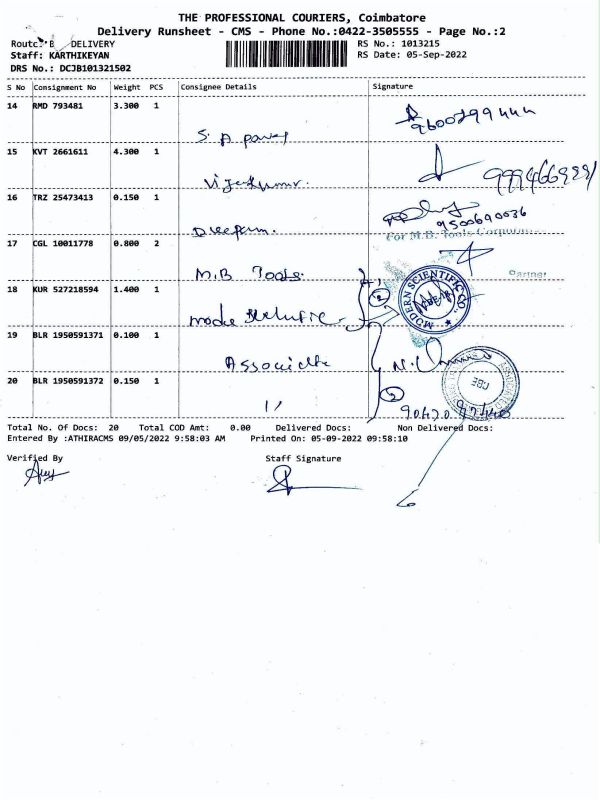 THE PROFESSIONAL COURIERS, Coimbatore
Delivery Runsheet - CMS - Phone No.:0422-3505555 - Page No.:2
Route: B DELIVERY
RS No.: 1013215
Staff: KARTHIKEYAN
RS Date: 05-Sep-2022
DRS No.: DCJB101321502
S No Consignment No Weight PCS Consignee Details Signature
14 RMD 793481 3.300 1
9600799444
15 KVT 2661611 4.300 1
Vijayakumar
16 TRZ 25473413 0.150 1
9500690036
For M.B. Tools Corporation
17 CGL 10011778 0.800 2
M.B Tools.
Partner
18 KUR 527218594 1.400 1
2
MODERN SCIENTIFIC CO.
19 BLR 1950591371 0.100 1
Associate
CBE
20 BLR 1950591372 0.150 1
11
2
Total No. Of Docs: 20 Total COD Amt: 0.00 Delivered Docs: Non Delivered Docs:
Entered By :ATHIRACMS 09/05/2022 9:58:03 AM Printed On: 05-09-2022 09:58:10
Verified By Staff Signature